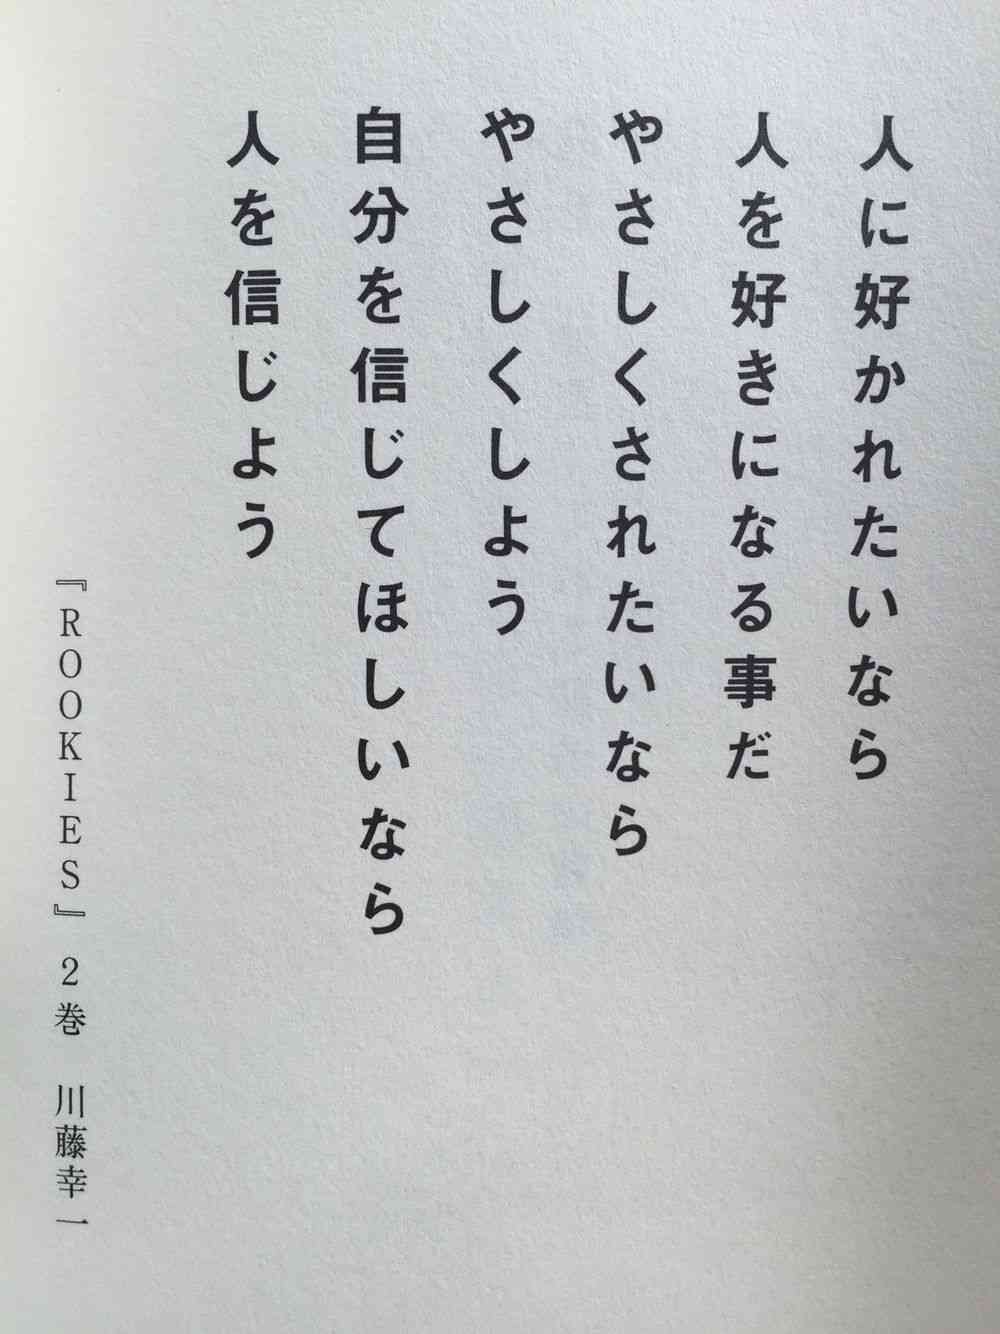 人に好かれたいなら
人を好きになる事だ
やさしくされたいなら
やさしくしよう
自分を信じてほしいなら
人を信じよう
『ROOKIES』2巻　川藤幸一